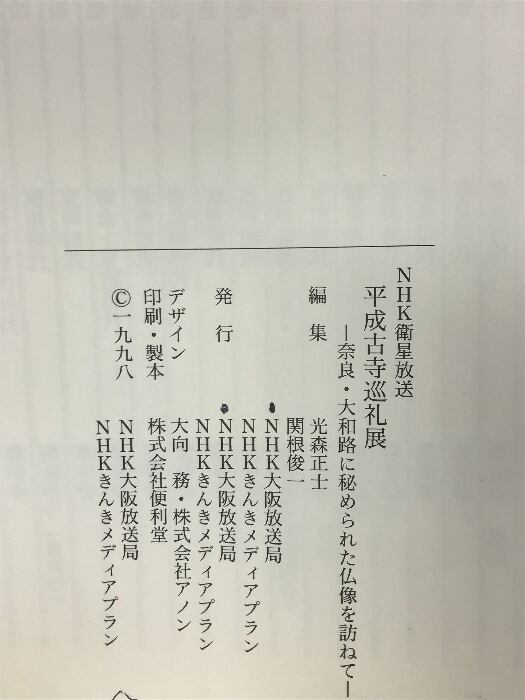 NHK衛星放送
平成古寺巡礼展
―奈良・大和路に秘められた仏像を訪ねて―
編 集　光森正士
関根俊一
NHK大阪放送局
NHKきんきメディアプラン
発 行　NHK大阪放送局
NHKきんきメディアプラン
デザイン　大向 務・株式会社アノン
印刷・製本　株式会社便利堂
©一九九八　NHK大阪放送局
NHKきんきメディアプラン